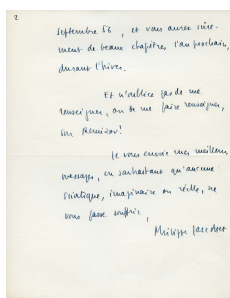 2
septembre 56, et vous aurez sûre-
ment de beaux chapitres l'an prochain,
durant l'hiver.
Et n'oubliez pas de me
renseigner, ou de me faire renseigner,
sur
Je vous envoie mes meilleurs
messages, en souhaitant qu'aucune
sciatique, imaginaire ou réelle, ne
vous fasse souffrir,
Philippe Jaccottet